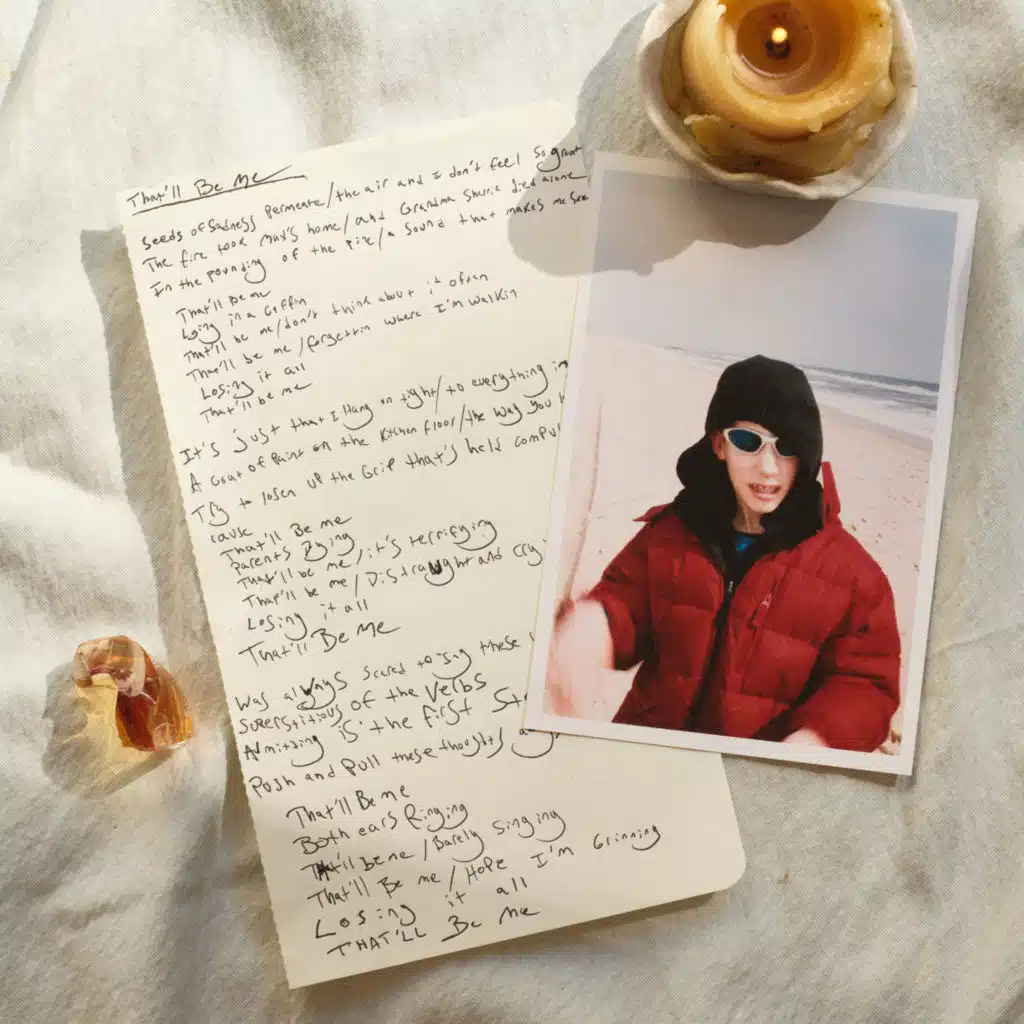 That'll Be Me
Seeds of Sadness Permeate/the air and I don't feel so great
The fire took Max's home/and Grandma Sherrie died alone
In the pounding of the fire/a sound that makes me see
That'll be me
Lying in a coffin
That'll be me/don't think about it often
That'll be me/forgettin where I'm walkin
Losing it all
That'll be me
It's just that I Hang on tight/to everything in
A coat of Paint on the Kitchen floor/the way you
Try to losen up the Grip that's held
cause
That'll Be me
Parents Dying
That'll be me/it's terrifying
That'll be me/Distraught and cry
Losing it all
That'll Be Me
Was always scared to sing these
Superstitious of the Verbs
Admitting is the first
Push and Pull these thoughts/
That'll Be me
Both ears Ringing
That'll be me/Barely singing
That'll Be me/Hope I'm Grinning
Losing it all
THAT'LL Be Me